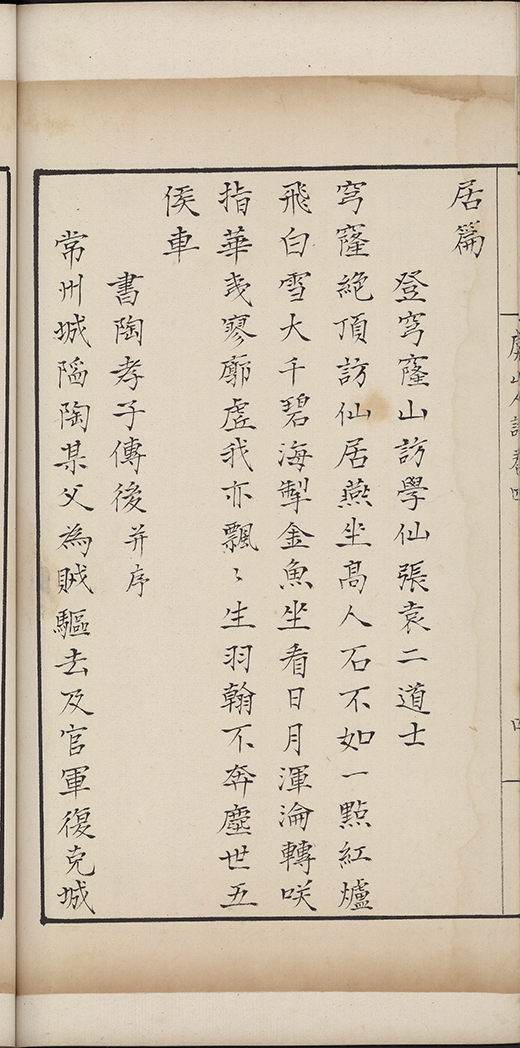 居篇
登穹窿山訪學仙張袁二道士
穹窿絶頂訪仙居燕坐高人石不如一點紅爐
飛白雪大千碧海掣金魚坐看日月渾淪轉咲
指華夷寥廓虛我亦飄〻生羽翰不奔塵世五
侯車
書陶孝子傳後并序
常州城陷陶某父為賊驅去及官軍復克城